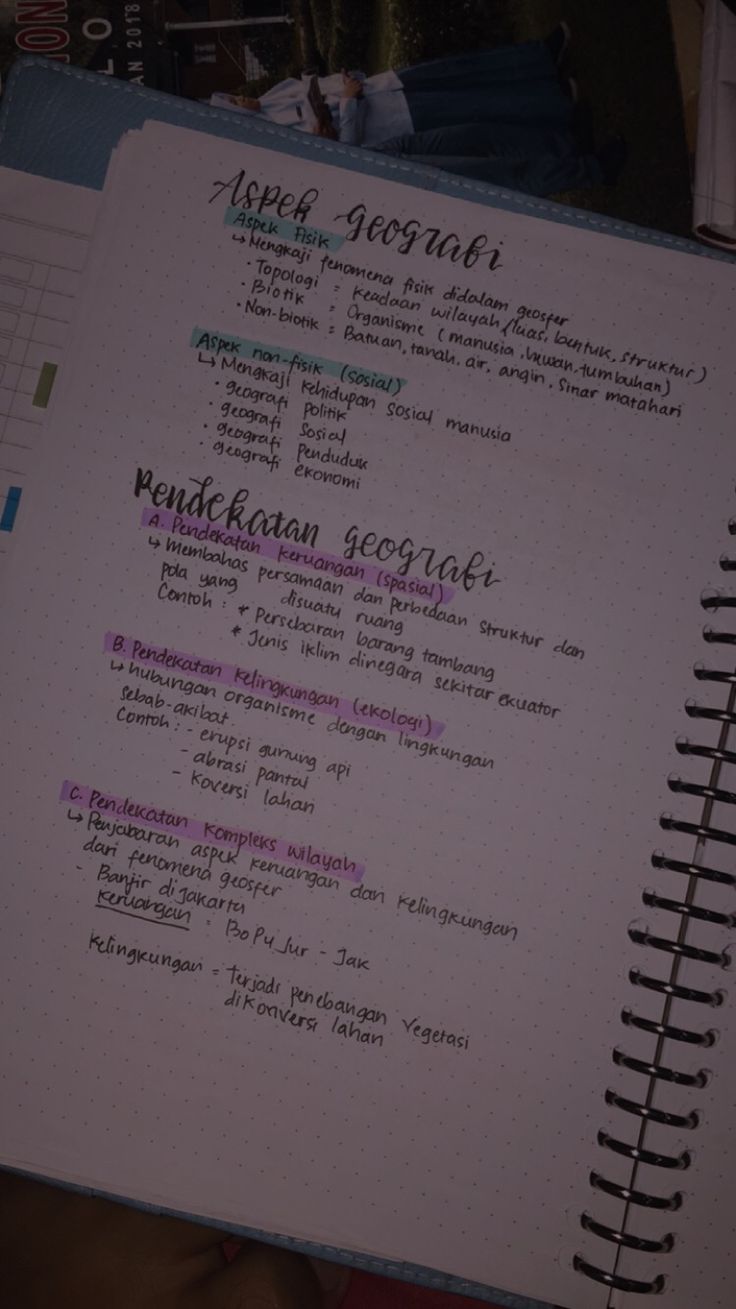 ON
LO
AN 2018
Aspek geografi
Aspek Fisik
↳ Mengkaji fenomena fisik didalam geosfer
• Topologi = Keadaan wilayah (luas, bentuk, struktur)
• Biotik = Organisme (manusia, hewan, tumbuhan)
• Non-biotik = Batuan, tanah, air, angin, Sinar matahari
Aspek non-fisik (sosial)
↳ Mengkaji kehidupan sosial manusia
• geografi politik
• geografi Sosial
• geografi Penduduk
• geografi ekonomi
Pendekatan geografi
A. Pendekatan keruangan (spasial)
↳ Membahas persamaan dan perbedaan struktur dan
pola yang disuatu ruang
Contoh : * Persebaran barang tambang
* Jenis iklim dinegara sekitar ekuator
B. Pendekatan kelingkungan (ekologi)
↳ hubungan organisme dengan lingkungan
sebab-akibat
Contoh : - erupsi gunung api
- abrasi pantai
- Koversi lahan
C. Pendekatan Kompleks wilayah
↳ Penjabaran aspek keruangan dan kelingkungan
dari fenomena geosfer
- Banjir dijakarta
keruangan = BoPuJur - Jak
kelingkungan = Terjadi penebangan vegetasi
dikonversi lahan